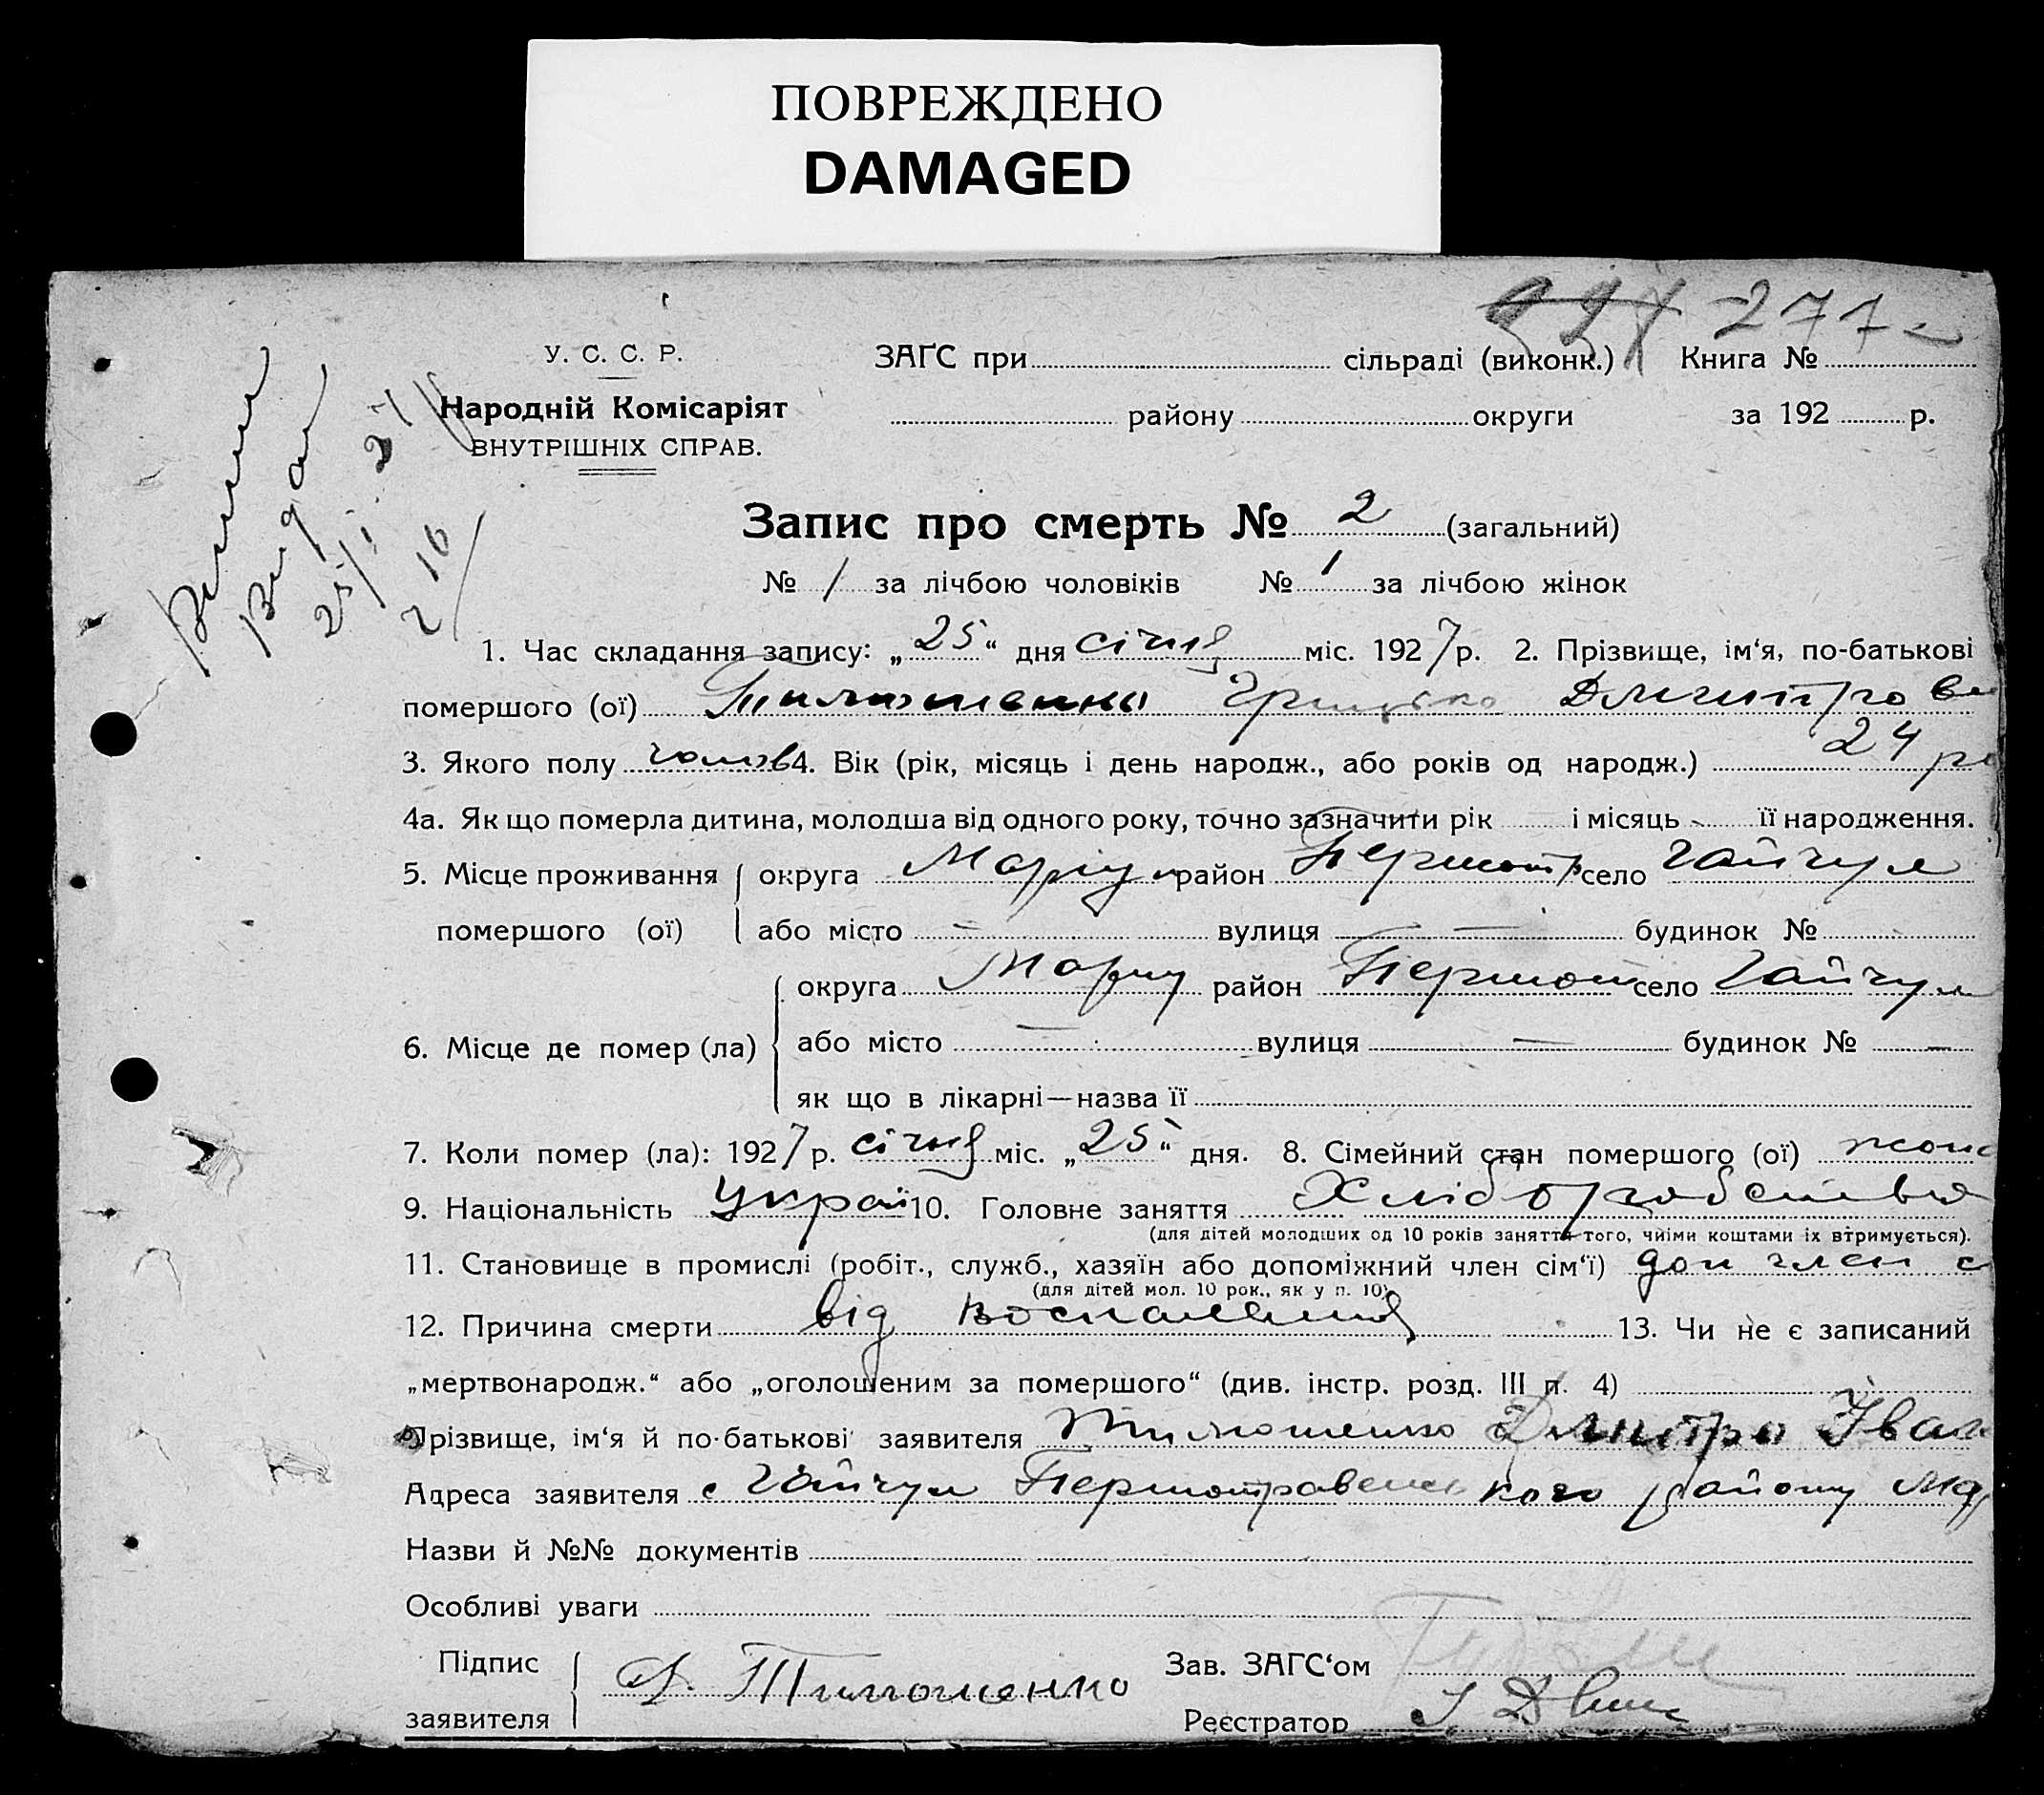 ПОВРЕЖДЕНО
DAMAGED
271
У. С. С. Р.
ЗАҐС при сільраді (виконк.) Книга №
Народній Комісаріят
району округи за 192 р.
ВНУТРІШНІХ СПРАВ.
Випис
Видан
25/I 27
Запис про смерть № 2 (загальний)
№ / за лічбою чоловіків № 1 за лічбою жінок
1. Час складання запису: „25“ дня січня міс. 1927 р. 2. Прізвище, ім‘я, по-батькові
помершого (ої) Тимошенко Грицько Дмитрови
3. Якого полу чолов 4. Вік (рік, місяць і день народж., або років од народж.) 24 ро
4а. Як що померла дитина, молодша від одного року, точно зазначити рік і місяць її народження.
5. Місце проживання округа Маріуп район Першотр село Гайчул
помершого (ої) або місто — вулиця — будинок №
округа Маріу район Першот село Гайчул
6. Місце де помер (ла) або місто — вулиця — будинок № —
як що в лікарні—назва її
7. Коли помер (ла): 1927 р. січня міс. „25“ дня. 8. Сімейний стан помершого (ої) жона
9. Національність Украї 10. Головне заняття Хліборобство
(для дітей молодших од 10 років заняття того, чиїми коштами їх втримується).
11. Становище в промислі (робіт., служб., хазяїн або допоміжний член сім‘ї) доп член с
(для дітей мол. 10 рок., як у п. 10)
12. Причина смерти від воспаления 13. Чи не є записаний
„мертвонародж.“ або „оголошеним за помершого“ (див. інстр. розд. III п. 4)
Прізвище, ім‘я й по-батькові заявителя Тимошенко Дмитро Іван
Адреса заявителя с Гайчул Першотравенського району Мар
Назви й №№ документів
Особливі уваги
Підпис Д. Тимошенко Зав. ЗАҐС‘ом
заявителя Реєстратор